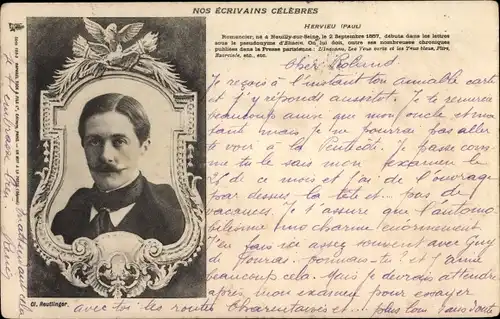 NOS ÉCRIVAINS CÉLÈBRES
HERVIEU (PAUL)
Romancier, né à Neuilly-sur-Seine, le 2 Septembre 1857, débute dans les lettres
sous le pseudonyme d'Eliacin. On lui doit, outre ses nombreuses chroniques
publiées dans la Presse parisienne : L'Inconnu, Les Yeux verts et les Yeux bleus, Flirt,
etc., etc.
Cher Roland
Je reçois à l'instant ton aimable carte
et j'y réponds aussitôt. Je te remercie
beaucoup ainsi que mon oncle et ma
tante mais je ne pourrai pas aller
te voir à la Pentecôte. Je passe comme
tu le sais mon examen le
25 de ce mois et j'ai de l'ouvrage
par dessus la tête et pas de
vacances. Je t'assure que l'automo-
bilisme me charme énormément
J'en fais ici assez souvent avec Guy
de connais-tu ? et j'aime
beaucoup cela. Mais je devrais attendre
après mon examen pour essayer
avec toi les routes Charentaises et plus loin sans doute
Cl. Reutlinger.
Je t'embrasse bien